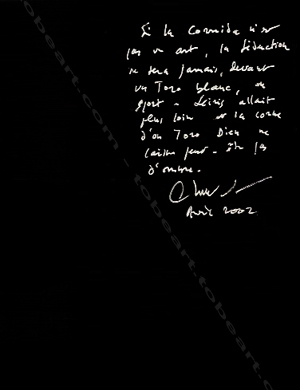 Si la Corrida n'est
pas un art, la séduction
ne sera jamais, devant
un Toro blanc, un
sport - Leiris allait
plus loin et la corne
d'un Toro Dieu ne
laisse peut-être pas
d'ombre.
Avril 2002
tobeart.com - tobeart.com - tobeart.com